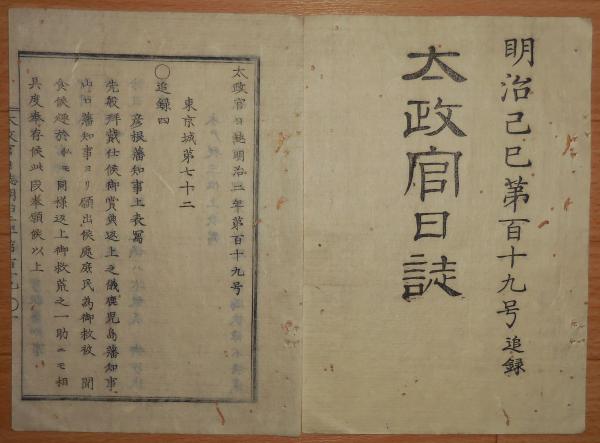 明治己巳第百十九号 追録
太政官日誌
太政官日誌明治二年第百十九号
東京城第七十二
○追録四
彦根藩知事上表写
先般拝戴仕候御賞典返上之儀鹿児島藩知事
山口藩知事ヨリ願出候処庶民為御救被 聞
食候趣於私モ同様返上御救荒之一助ニモ相
具度奉存候此段奉願候以上